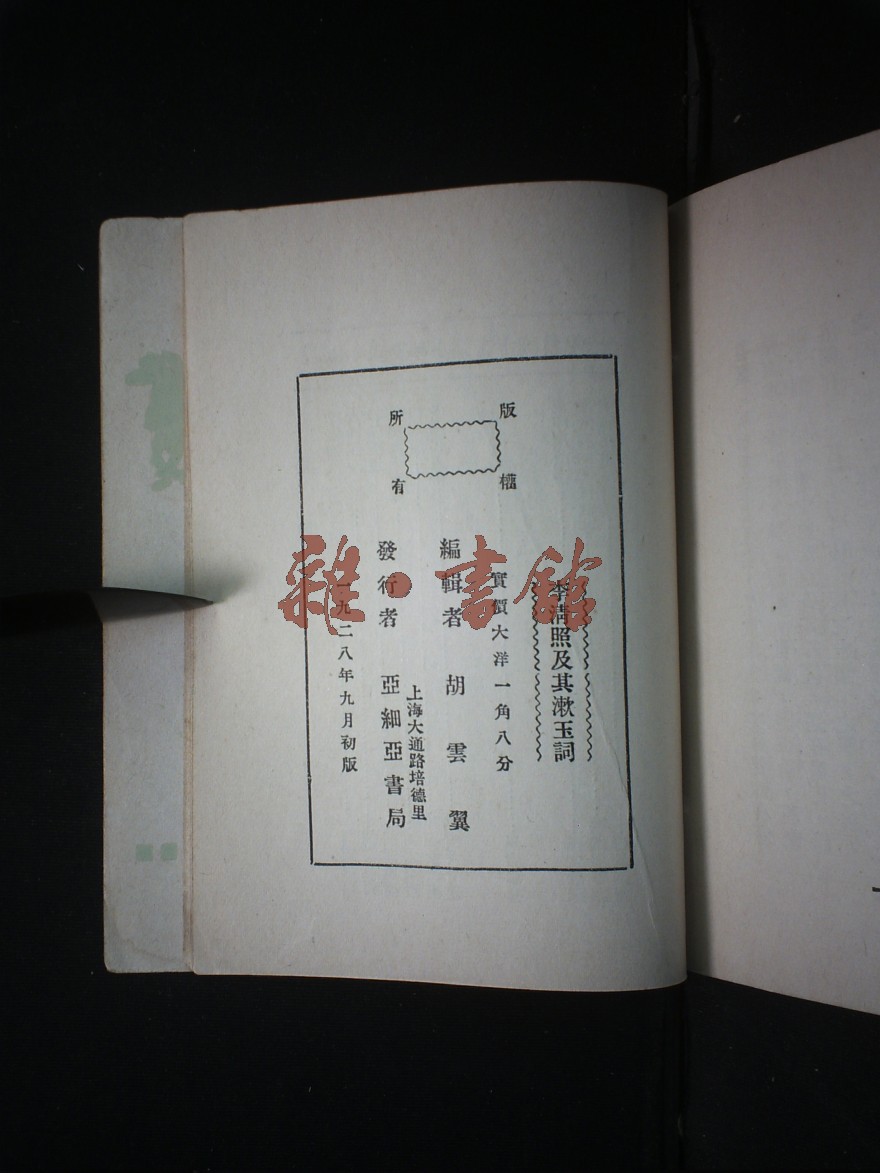 李清照及其漱玉詞
實價大洋一角八分
版權
所有
編輯者 胡雲翼
上海大通路培德里
發行者 亞細亞書局
一九二八年九月初版
雜·書館